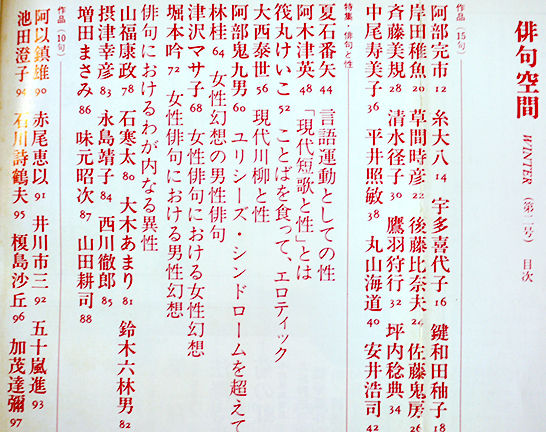 俳句空間 WINTER (第二号) 目次
作品(15句)
阿部完市 12 糸大八 14 宇多喜代子 16 鍵和田秞子 18
岸田稚魚 20 草間時彦 22 後藤比奈夫 24 佐藤鬼房 26
斉藤美規 28 清水径子 30 鷹羽狩行 32 坪内稔典 34
中尾寿美子 36 平井照敏 38 丸山海道 40 安井浩司 42
特集・俳句と性
夏石番矢 44 言語運動としての性
阿木津英 48 「現代短歌と性」とは
筏丸けいこ 52 ことばを食って、エロティック
大西泰世 56 現代川柳と性
阿部鬼九男 60 ユリシーズ・シンドロームを超えて
林桂 64 女性幻想の男性俳句
津沢マサ子 68 女性俳句における女性幻想
堀本吟 72 女性俳句における男性幻想
俳句におけるわが内なる異性
山福康政 78 石寒太 80 大木あまり 81 鈴木六林男 82
摂津幸彦 83 永島靖子 84 西川徹郎 85
増田まさみ 86 味元昭次 87 山田耕司 88
作品(10句)
阿以鎮雄 90 赤尾恵以 91 井川市三 92 五十嵐進 93
池田澄子 94 石川詩鶴夫 95 榎島沙丘 96 加茂達彌 97